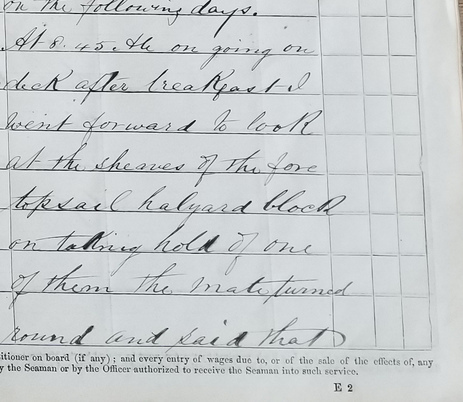 on the following days.
At 8.45 AM on going on
deck after breakfast I
went forward to look
at the sheaves of the fore
topsail halyard block
on taking hold of one
of them the mate turned
round and said that
itioner on board (if any) ; and every entry of wages due to, or of the sale of the effects of, any
y the Seaman or by the Officer authorized to receive the Seaman into such service.
E 2